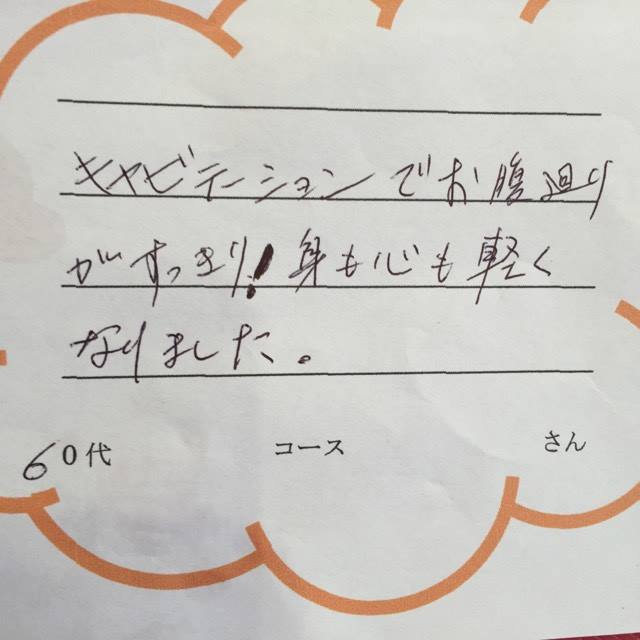 キャビテーションでお腹廻り
がすっきり!身も心も軽く
なりました。
60代 コース さん